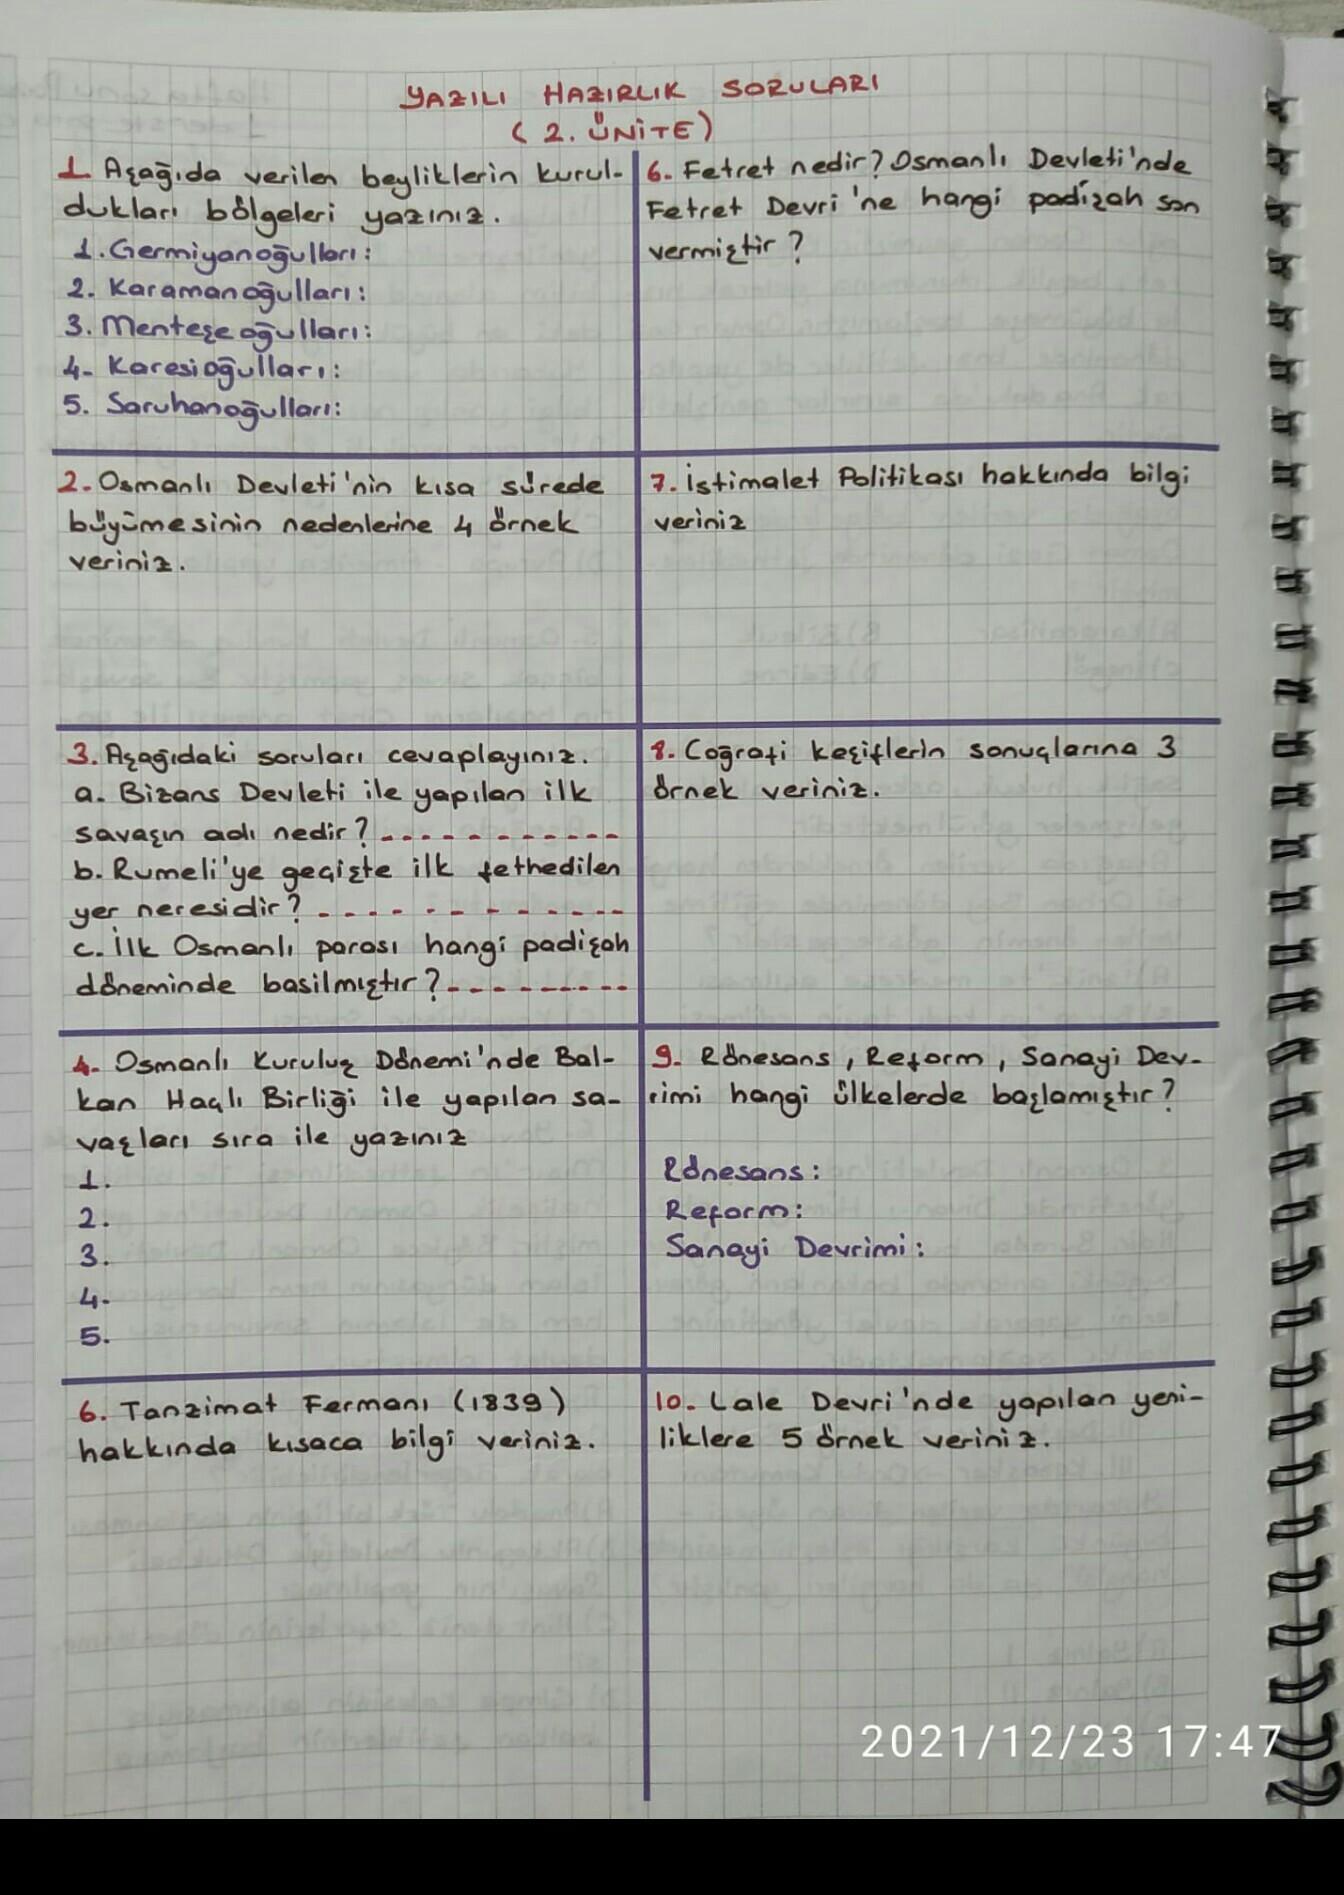 YAZILI HAZIRLIK SORULARI
(2. ÜNİTE)
1. Aşağıda verilen beyliklerin kurul-
dukları bölgeleri yazınız.
1. Germiyanoğulları:
2. Karamanoğulları:
3. Menteşeoğulları:
4- Karesioğulları:
5. Saruhanoğulları:
2. Osmanlı Devleti'nin kısa sürede
büyümesinin nedenlerine 4 örnek
veriniz.
3. Aşağıdaki soruları cevaplayınız.
a. Bizans Devleti ile yapılan ilk
savaşın adı nedir? - - - - - - - - - - -
b. Rumeli'ye geçişte ilk fethedilen
yer neresidir? - - - - - - - - - - - -
c. İlk Osmanlı parası hangi padişah
döneminde basilmıştır? - - - - - - - - -
4. Osmanlı Kuruluş Dönemi'nde Bal-
kan Haçlı Birliği ile yapılan sa-
vaşları sıra ile yazınız
1.
2.
3.
4.
5.
6. Tanzimat Fermanı (1839)
hakkında kısaca bilgi veriniz.
6. Fetret nedir? Osmanlı Devleti'nde
Fetret Devri'ne hangi padişah son
vermiştir?
7. İstimalet Politikası hakkında bilgi
veriniz
8. Coğrafi keşiflerin sonuçlarına 3
örnek veriniz.
9. Rönesans, Reform, Sanayi Dev-
rimi hangi ülkelerde başlamıştır?
Rönesans:
Reform:
Sanayi Devrimi:
10. Lale Devri'nde yapılan yeni-
liklere 5 örnek veriniz.
2021/12/23 17:47